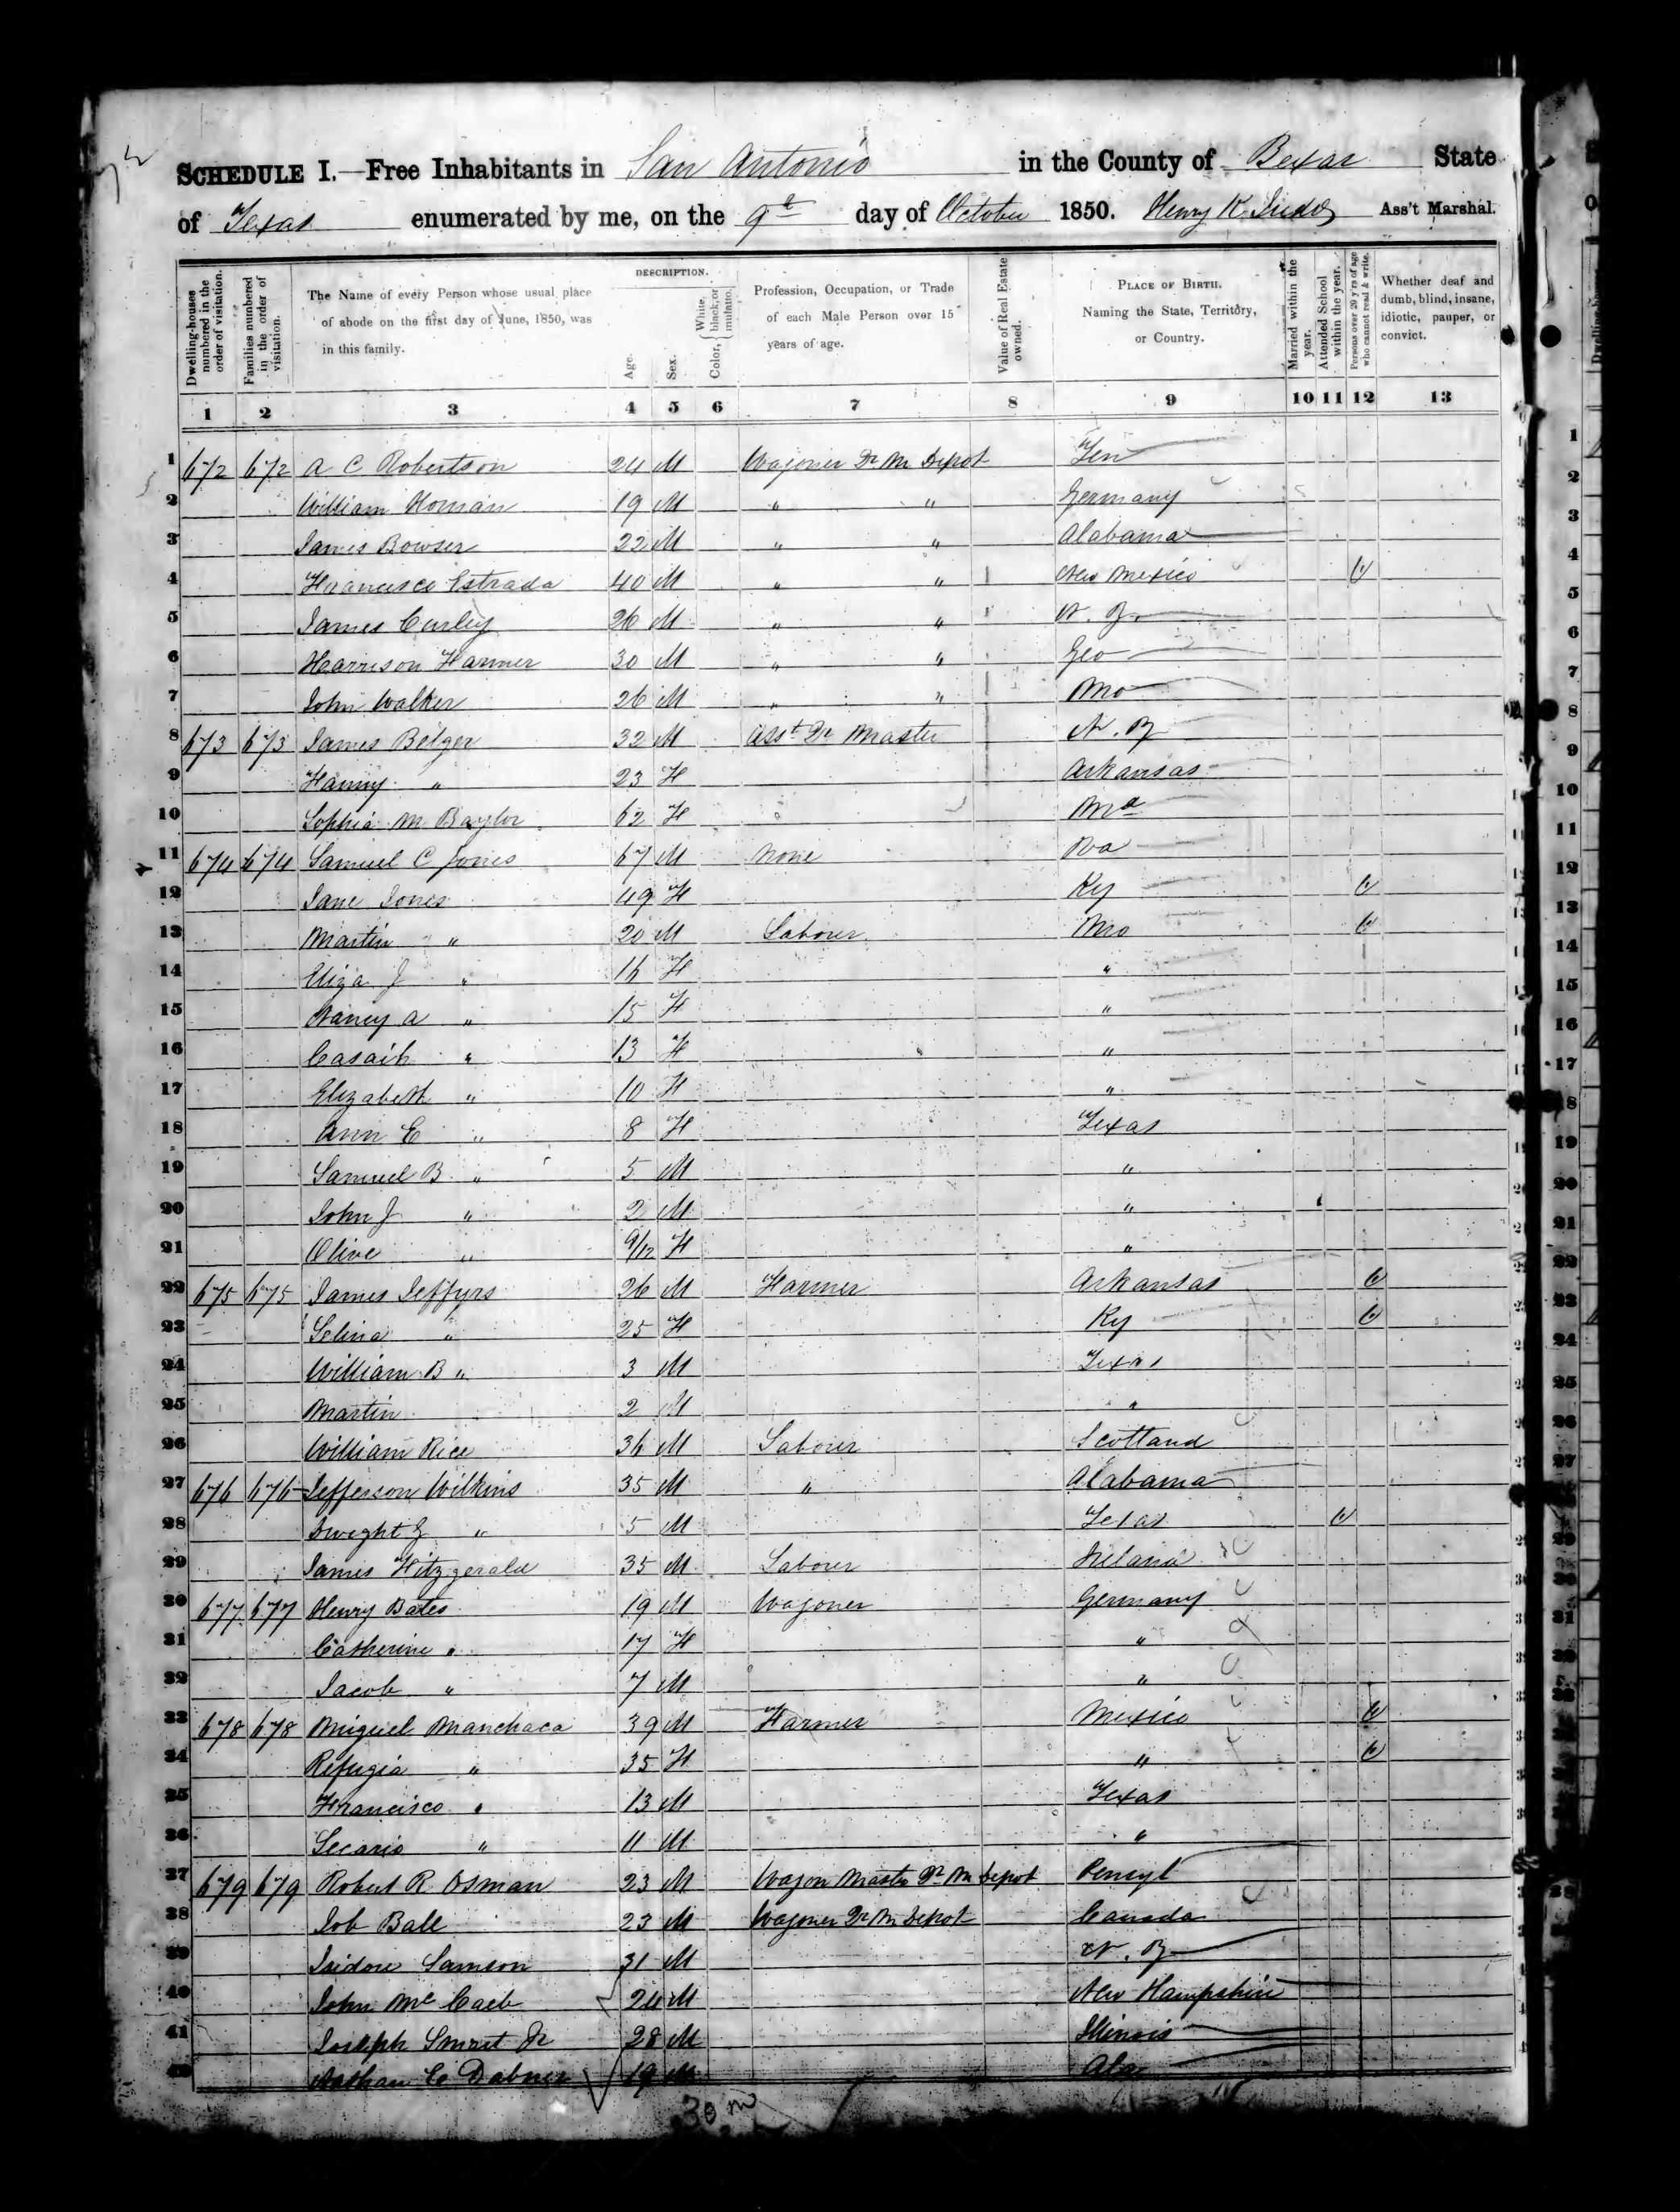 SCHEDULE I.—Free Inhabitants in San Antonio in the County of Bexar State
of Texas enumerated by me, on the 9th day of October 1850. Henry K. Ass't Marshal.
Dwelling-houses numbered in the order of visitation.
Families numbered in the order of visitation.
The Name of every Person whose usual place of abode on the first day of June, 1850, was in this family.
DESCRIPTION.
Age.
Sex.
Color, { White, black, or mulatto.
Profession, Occupation, or Trade of each Male Person over 15 years of age.
Value of Real Estate owned.
PLACE OF BIRTH. Naming the State, Territory, or Country.
Married within the year.
Attended School within the year.
Persons over 20 y'rs of age who cannot read & write.
Whether deaf and dumb, blind, insane, idiotic, pauper, or convict.
1 2 3 4 5 6 7 8 9 10 11 12 13
1 672 672 A C Robertson 24 M Wagoner Qr M Depot Ten
2 William Homan 19 M " " Germany
3 James Bowser 22 M " " Alabama
4 Francisco Estrada 40 M " " New Mexico
5 James Curley 26 M " " N. Y.
6 Harrison Farmer 30 M " " Geo
7 John Walker 26 M " " Mo
8 673 673 James Belger 32 M Asst Qr Master N. Y
9 Fanny " 23 F Arkansas
10 Sophia M Baylor 62 F Md
11 674 674 Samuel C Jones 67 M None Va
12 Jane Jones 49 F Ky
13 Martin " 20 M Laborer Mo
14 Eliza J " 16 F "
15 Nancy A " 15 F "
16 " 13 F "
17 Elizabeth " 10 F "
18 Ann E " 8 F Texas
19 Samuel B " 5 M "
20 John J " 2 M "
21 Olive " 9/12 F "
22 675 675 James Jeffyrs 26 M Farmer Arkansas
23 Selina " 25 F Ky
24 William B " 3 M Texas
25 Martin 2 M "
26 William Rice 36 M Laborer Scotland
27 676 676 Jefferson Wilkins 35 M " Alabama
28 Dwight " 5 M Texas
29 James Fitzgerald 35 M Laborer Ireland
30 677 677 Henry Bates 19 M Wagoner Germany
31 Catherine " 17 F "
32 Jacob " 7 M "
33 678 678 Miguel Manchaca 39 M Farmer Mexico
34 Refugia " 35 F "
35 Francisco " 13 M Texas
36 " 11 M "
37 679 679 Robert R Osman 23 M Wagon Master Qr M Depot Pensyl
38 Job Ball 23 M Wagoner Qr M Depot Canada
39 Isidore Samson 31 M N. Y
40 John Mc Caeb 24 M New Hampshire
41 Joseph Smart Jr 28 M Illinois
42 Nathan C Dabner 19 M Ala
30 m